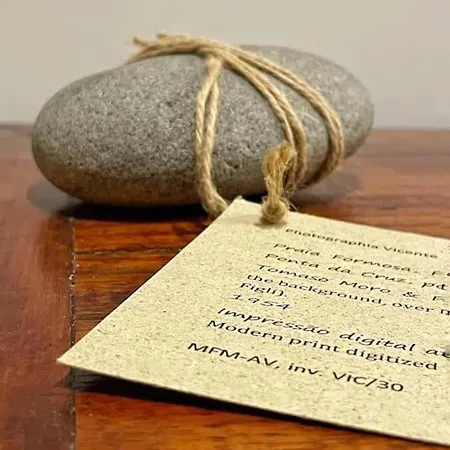 Photographia Vicente
Praia Formosa.
Ponta da Cruz, pa
Tomaso Moro & F
the background, over m
Figli).
1954
Impressão digital a
Modern print digitized
MFM-AV, inv. VIC/30